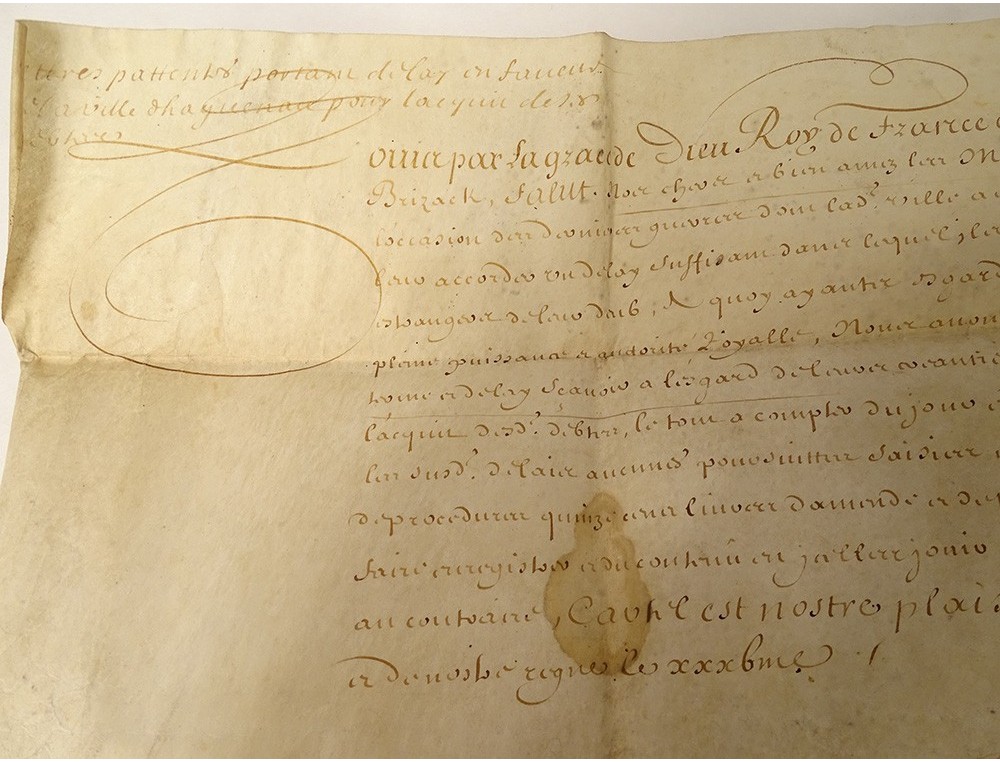 ttres pattentes portant delay en faueur
la ville dhaguenau pour lacquit de ses
debtes
Louis par la grace de Dieu Roy de France e
Brizack, Salut. Nos chers et bien amez les M
loccasion des dernieres guerres dont lad.e ville a e
leur accorder un delay suffisant dans lequel jls
estrangers de leur dub, A quoy ayants Esgard
pleine puissance et authorité Royalle, Nous auons
terme et delay Scauoir a lesgard de leurs creantie
lacquit desd.es debtes, le tout a compter du jour
les susd.s delais aucunnes poursuittes saisies
de procedures quinze cens liures damende et de
faire enregistrer et du contenu en jcelles jouir
au contraire, Car tel est nostre plais
et de nostre regne le xxxbme /